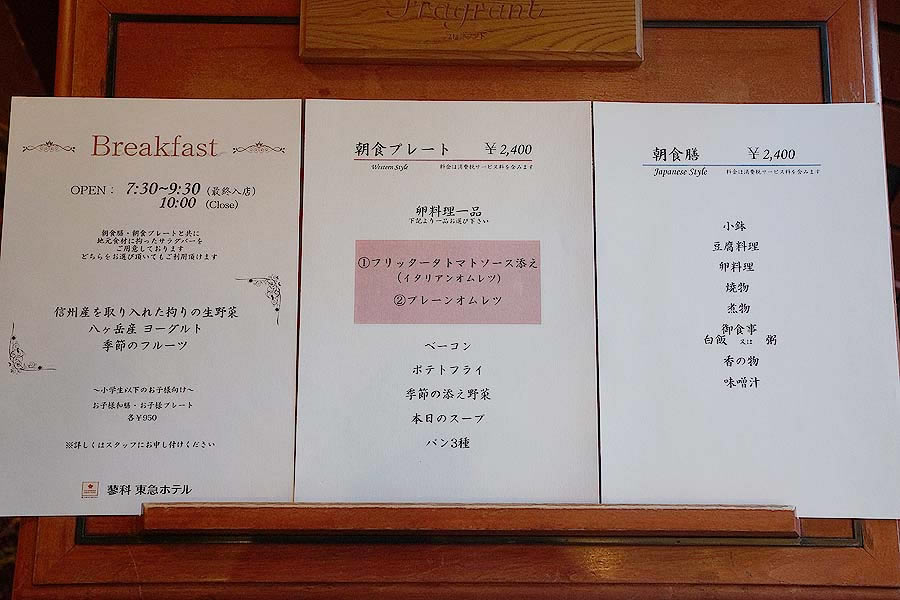 Fragrant
Breakfast
OPEN： 7:30~9:30（最終入店）
10:00 （Close）
朝食膳・朝食プレートと共に
地元食材に拘ったサラダバーを
ご用意しております
どちらをお選び頂いてもご利用頂けます
信州産を取り入れた拘りの生野菜
八ヶ岳産 ヨーグルト
季節のフルーツ
～小学生以下のお子様向け～
お子様和膳・お子様プレート
各￥950
※詳しくはスタッフにお申し付けください
蓼科 東急ホテル
朝食プレート ￥2,400
Western Style 料金は消費税サービス料を含みます
卵料理一品
下記より一品お選び下さい
①フリッタータトマトソース添え
（イタリアンオムレツ）
②プレーンオムレツ
ベーコン
ポテトフライ
季節の添え野菜
本日のスープ
パン3種
朝食膳 ￥2,400
Japanese Style 料金は消費税サービス料を含みます
小鉢
豆腐料理
卵料理
焼物
煮物
御食事
白飯 又は 粥
香の物
味噌汁